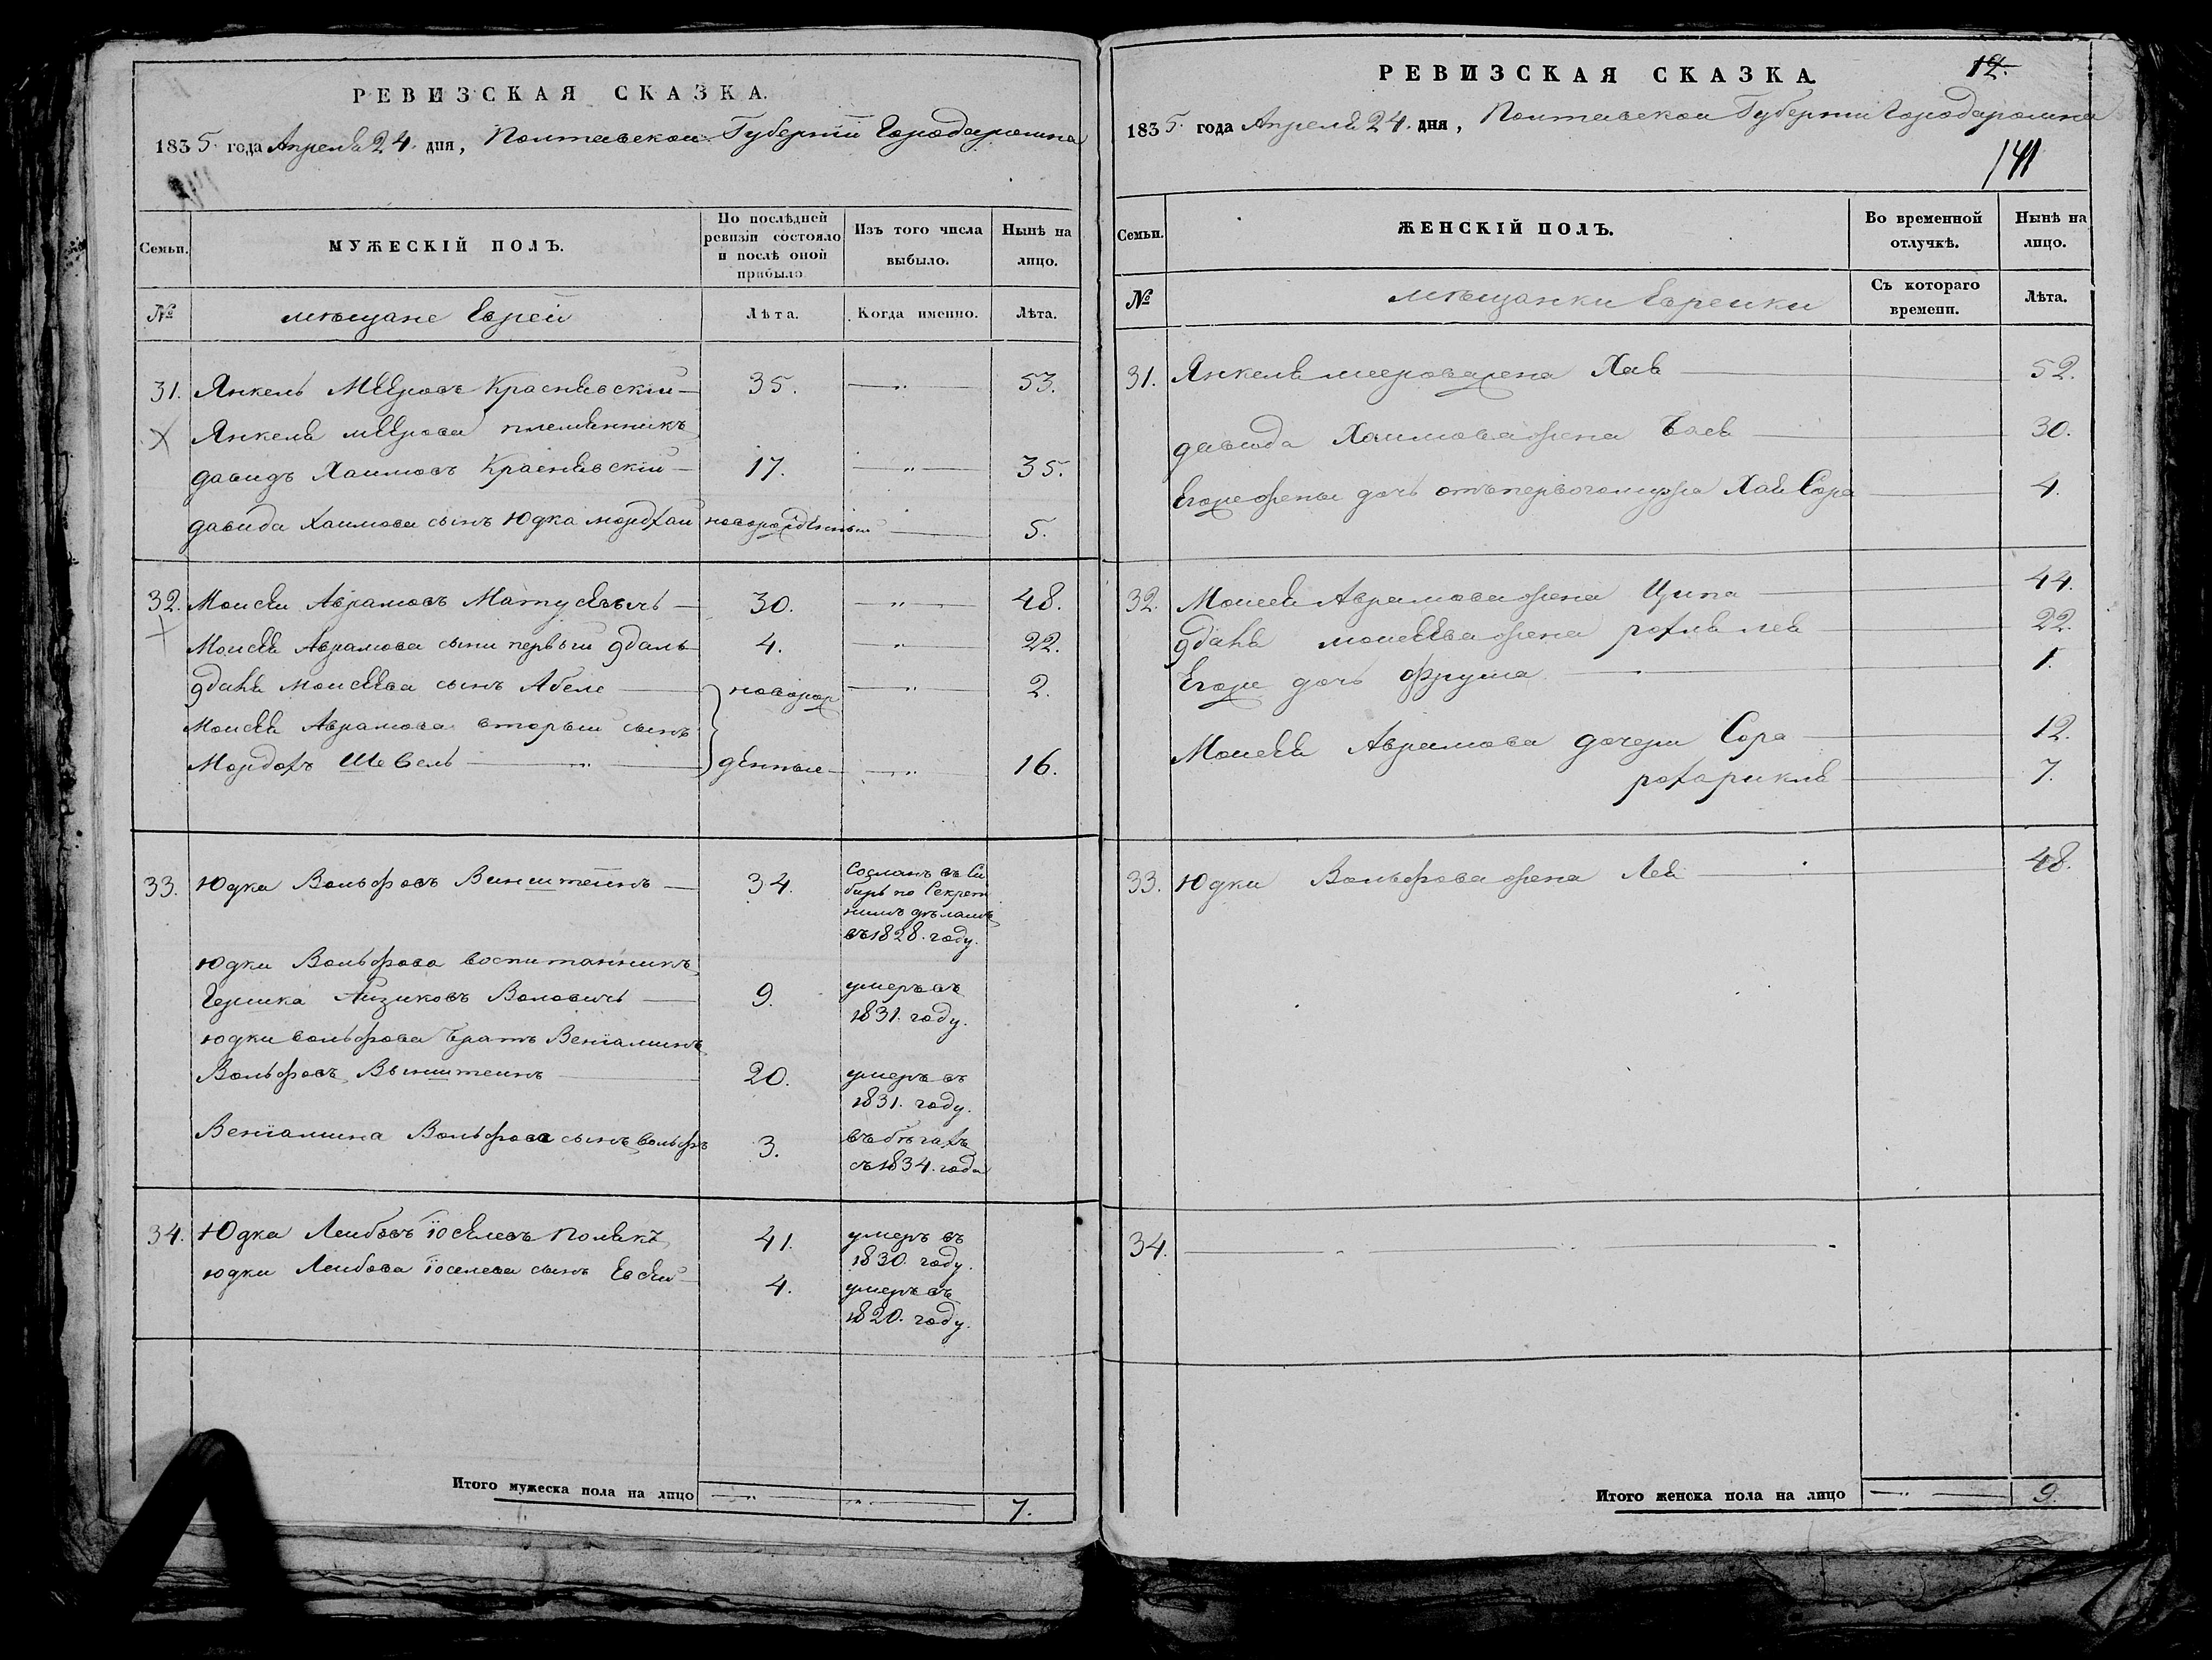 РЕВИЗСКАЯ СКАЗКА.
1835. года Апреля 24. дня, Полтавской Губернїи Города
Семьи.
МУЖЕСКІЙ ПОЛЪ.
По послѣдней ревизіи состояло и послѣ оной прибыло
Изъ того числа выбыло.
Нынѣ на лицо.
№
мѣщане Евреи
Лѣта.
Когда именно.
Лѣта.
31. Янкель Мееровъ Красневскій 35. — „ — 53.
Янкеля меерова племянникъ
давидъ Хаимовъ Красневскій 17. — „ — 35.
давида Хаимова сынъ Юдка мордхай новорожденный — 5.
32. Моисей Аврамовъ Матусевичъ 30. — „ — 48.
Моисея Аврамова сыни первый 4. — „ — 22.
Моисеева сынъ Абеле новорож — „ — 2.
Моисея Аврамова вторый сынъ
Мордохъ Шевель — „ — денные — „ — 16.
33. Юдка Вольфовъ Винштеинъ 34. Сосланъ въ Си
бирь по Секрет
нимъ дѣламъ
въ 1828. году.
Юдки Вольфова воспитанникъ
Гершка Айзиковъ Воловичъ 9. умеръ въ
1831. году.
юдки вольфова братъ Венїаминъ
Вольфовъ Винштеинъ 20. умеръ въ
1831. году.
Венїамина Вольфова сынъ вольфъ 3. въ бѣгахъ
съ 1834. года
34. Юдка Леибовъ їоселевъ Полякъ 41. умеръ въ
1830. году.
юдки Леибова їоселева сынъ Евсей 4. умеръ въ
1820. году.
Итого мужеска пола на лицо — „ — — „ — 7.
12.
РЕВИЗСКАЯ СКАЗКА.
1835. года Апреля 24. дня, Полтавской Губернїи Города
141
Семьи.
ЖЕНСКІЙ ПОЛЪ.
Во временной отлучкѣ.
Нынѣ на лицо.
№
мѣщанки Евреики
Съ котораго времени.
Лѣта.
31. Янкеля меерова жена Хая 52.
давида Хаимова жена Бася 30.
Егоже жены дочь отъ первого мужа Хая Сора 4.
32. Моисея Аврамова жена Ципа 44.
моисеева жена рохля лея 22.
Егоже дочь Фрума 1.
Моисея Аврамова дочери Сора 12.
рохарикля 7.
33. Юдки Вольфова жена Лея 48.
34.
Итого женска пола на лицо — „ — 9.